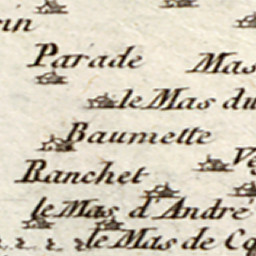 Parade
Mas
le Mas du
Baumette
Ranchet
le Mas d'André
le Mas de